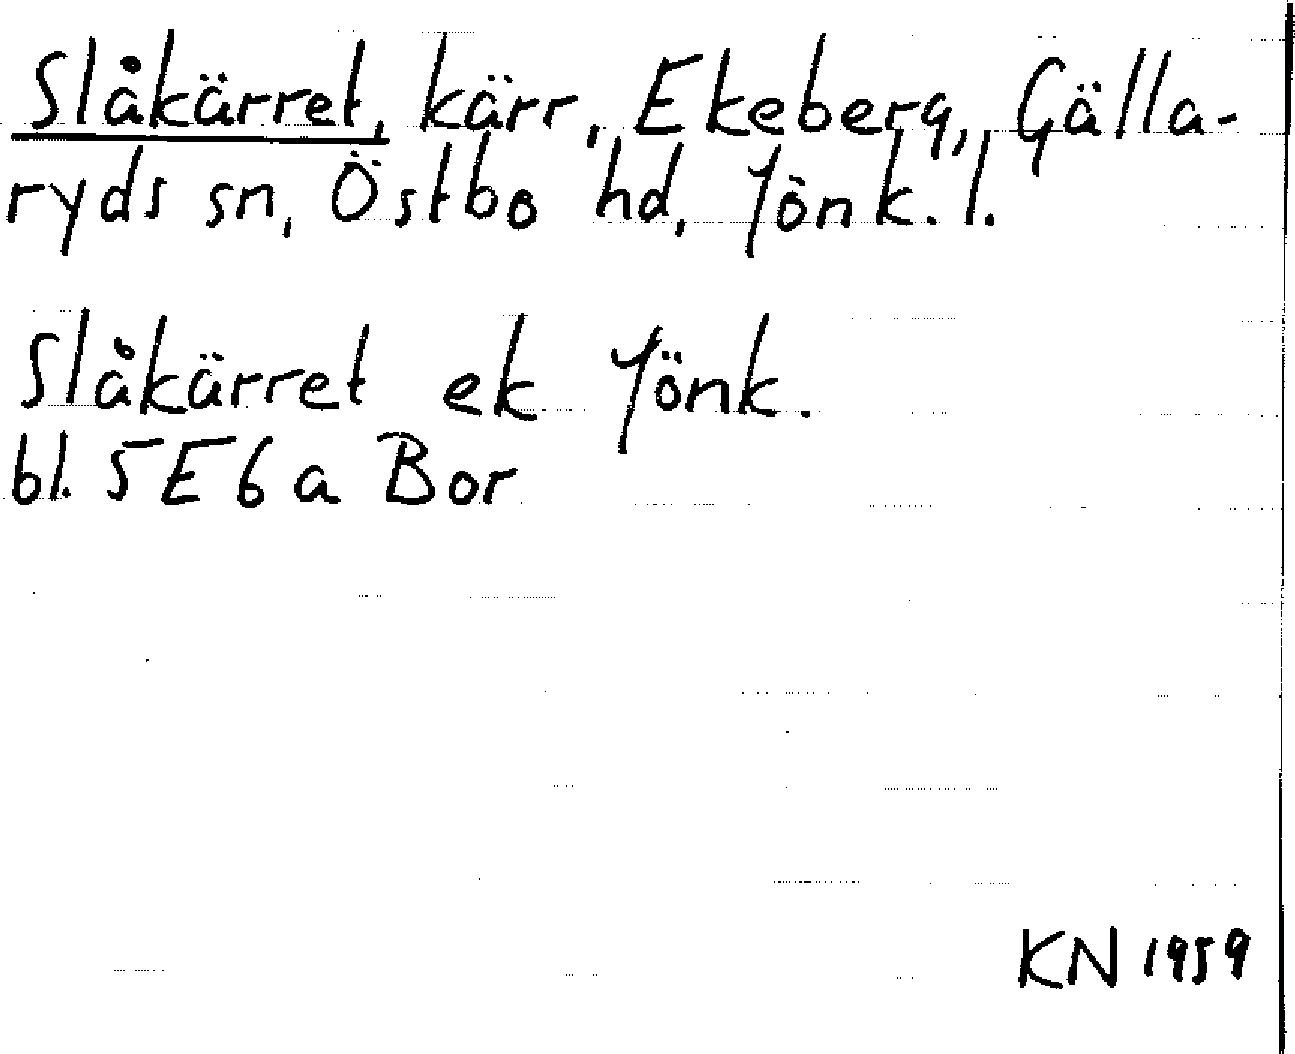 Slåkärret, kärr, Ekeberg, Gälla-
ryds sn, Östbo hd, Jönk. l.
Slåkärret ek Jönk.
bl. 5E6a Bor
KN 1959